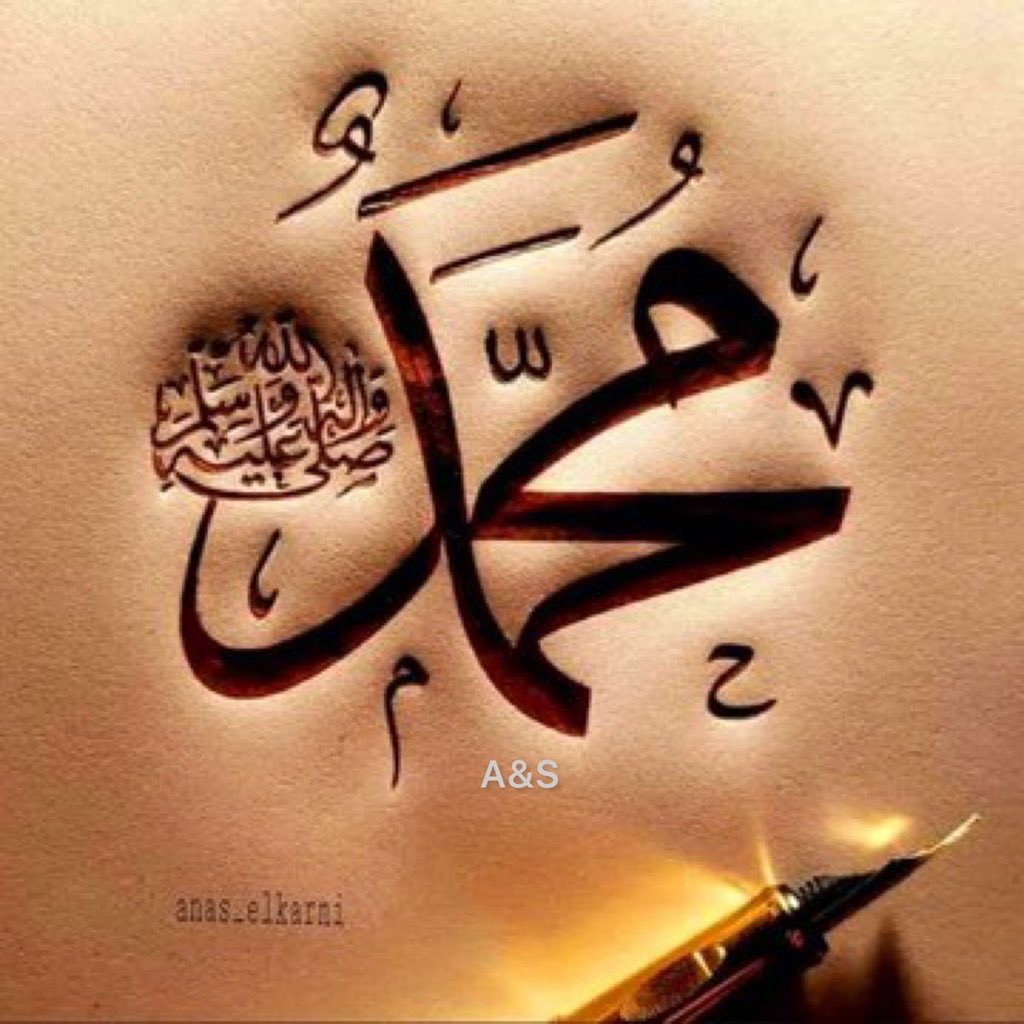 مُحَمَّدٌ
صلى الله عليه وآله وسلم
م ح
A&S
anas_elkarni